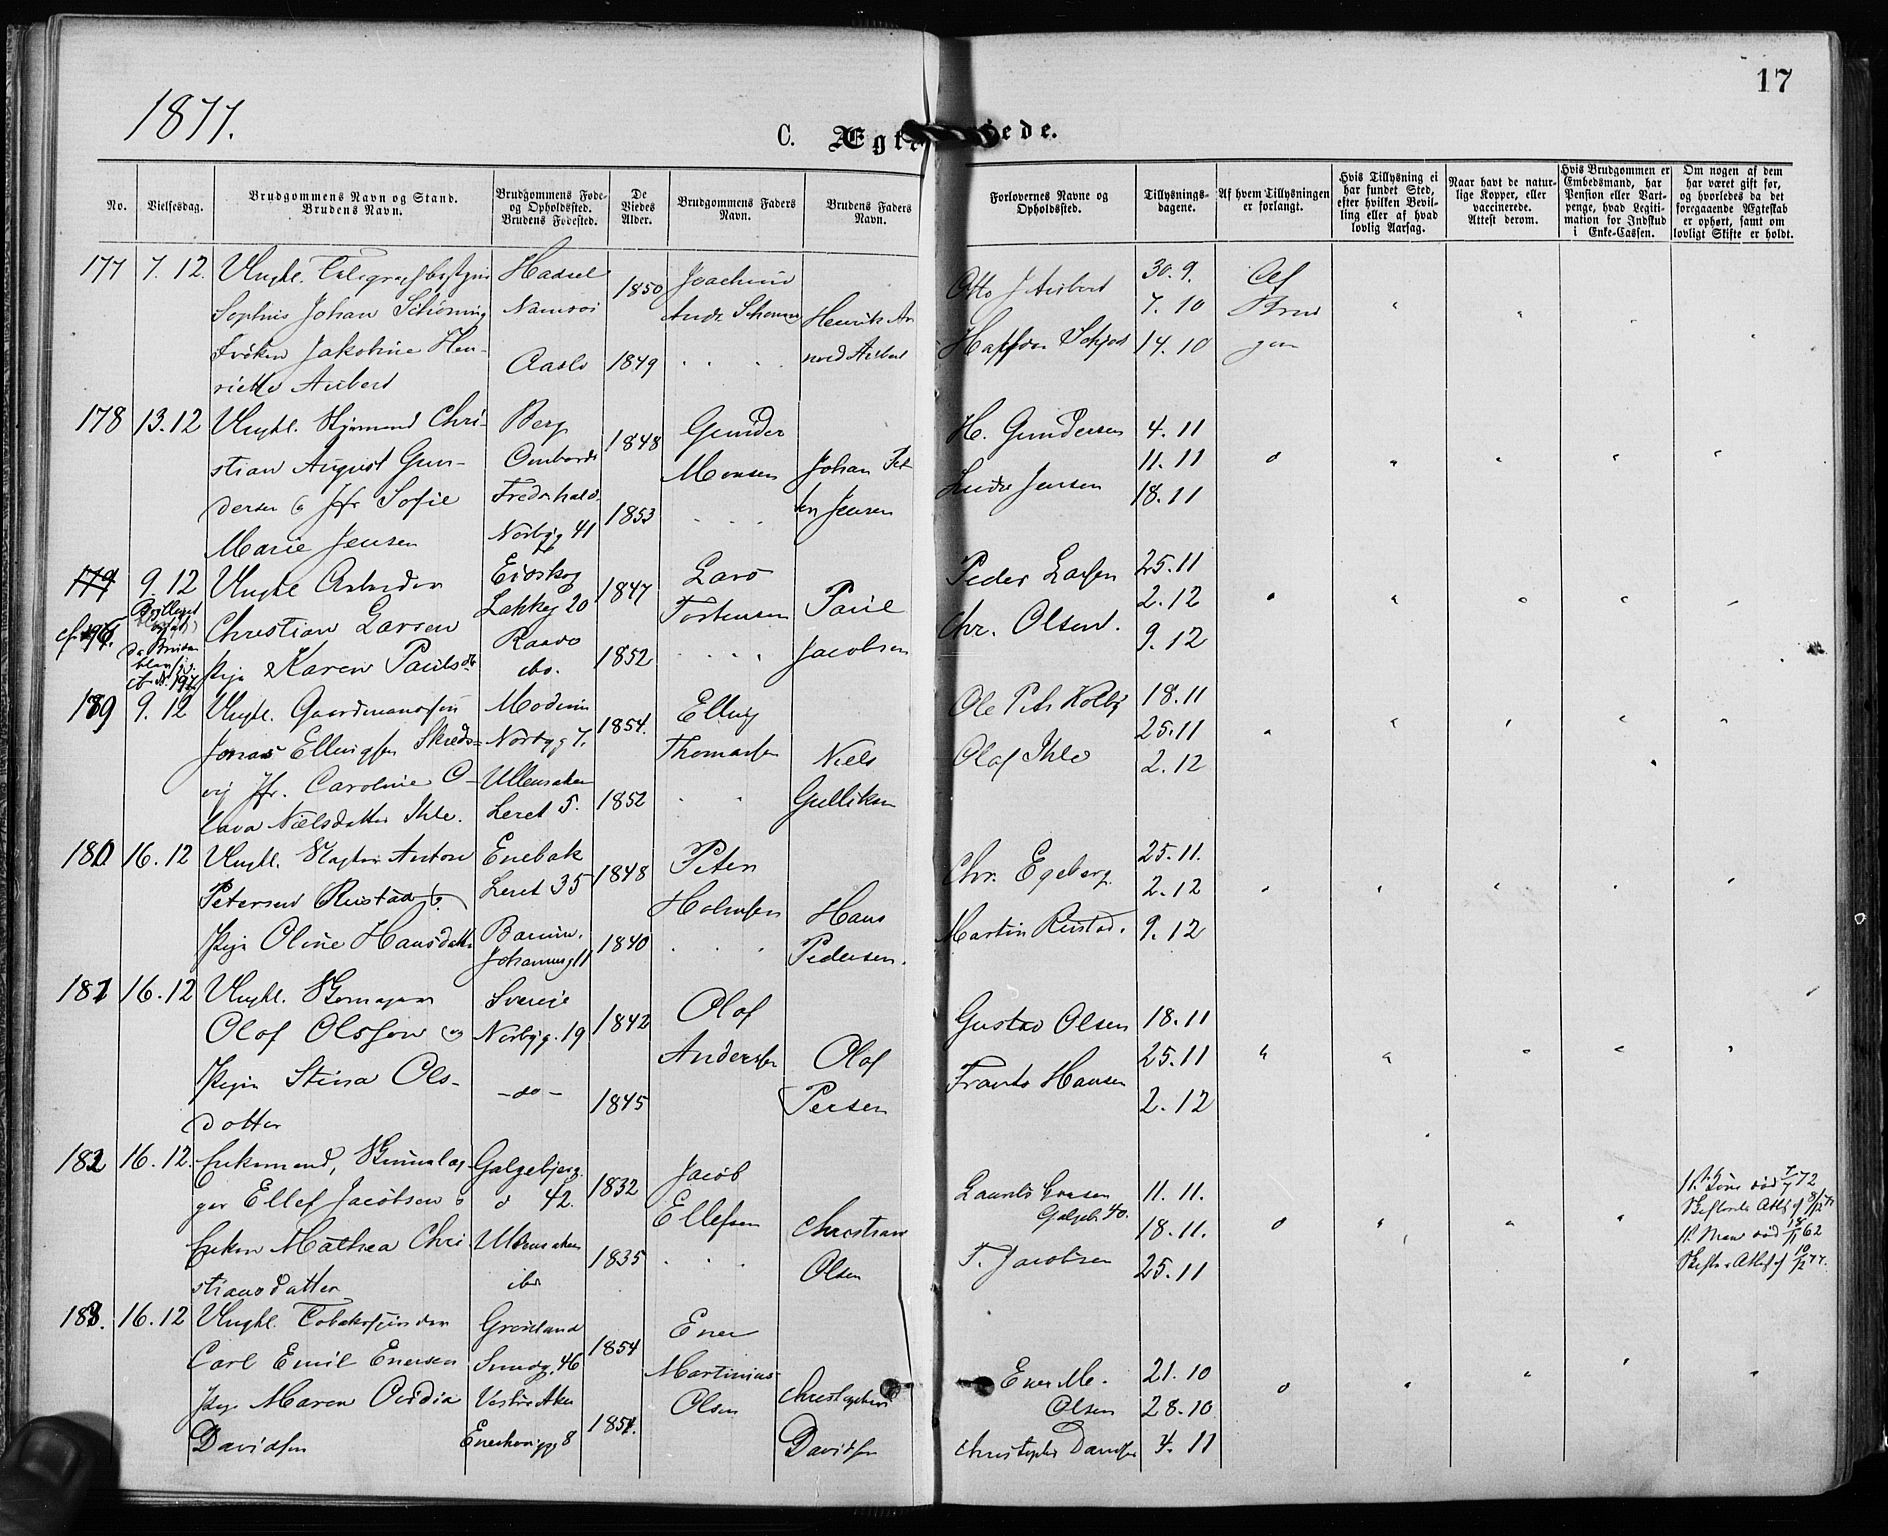 17
1877.
C. Ægt iede.
No.
Vielsesdag.
Brudgommens Navn og Stand.
Brudens Navn.
Brudgommens Føde-
og Opholdssted.
Brudens Fødested.
De
Viedes
Alder.
Brudgommens Faders
Navn.
Brudens Faders
Navn.
Forlovernes Navne og
Opholdssted.
Tillysnings-
dagene.
Af hvem Tillysningen
er forlangt.
Hvis Tillysning ei
har fundet Sted,
efter hvilken Bevil-
ling eller af hvad
lovlig Aarsag.
Naar havt de natur-
lige Kopper, eller
vaccinerede.
Attest derom.
Hvis Brudgommen er
Embedsmand, har
Pension eller Vart-
penge, hvad Legiti-
mation for Indskud
i Enke-Cassen.
Om nogen af dem
har været gift før,
og hvorledes da det
foregaaende Ægteskab
er ophørt, samt om
lovligt Skifte er holdt.
177 7. 12. Ungkl.
Sophus Johan Schønning
Frøken Jakobine Hen-
riette Aubert
Hadsel
Namsos
Aaslo
1850
1849
Joachim
Andr.
Henrik Ar
nord Aubert
Otto J Aubert
Halfdan
30. 9.
7. 10
14. 10
Af
Brud
gom
178 13. 12 Ungkl. Styrmand Chri-
stian August Gun-
dersen & Jfr Sofie
Marie Jensen
Berg
Ombord
Fredrhald.
Norbyg 41
1848
1853
Gunder
Monsen
Johan Pet
ter Jensen
H. Gundersen
Jensen
4. 11
11. 11
18. 11
179
cf. 196.
9. 12 Ungkl Arbeider
Christian Larsen
Pige Karen Paulsdt
Eidskog
Lakkeg 20
ibo.
1847
1852
Lars
Torstensen
Paul
Jacobsen
Peder Larsen
Chr. Olsen.
25. 11
2. 12
9. 12
179 9. 12 Ungkl. Gaardmanssøn
Jonas Ellingsen Skreds-
vig Jfr. Caroline O-
lava Nielsdatter Ihle.
Modum
Norbyg 7.
Ullensaker
Leret 5.
1854.
1852
Elling
Thomassen
Niels
Gulliksen
Ole Pet Kolby
Olaf Ihle
18. 11
25. 11
2. 12
180 16. 12 Ungkl. Slagter Anton
Petersen Rustad &
Pige Oline Hansdatter
Enebak
Leret 35
Bærum.
Johannesg 11
1848
1840
Peter
Holmsen
Hans
Pedersen.
Chr. Egeberg
Martin Rustad.
25. 11.
2. 12
9. 12
181 16. 12 Ungkl. Skomager
Olof Olsson og
Pige Stina Ols-
dotter
Sverige
Norbyg. 19
- do -
1842
1845
Olof
Andersen
Olof
Persen
Gustav Olsen
Frants Hansen
18. 11
25. 11
2. 12
182 16. 12. Enkemand,
ger Ellef Jacobsen &
Enken Mathea Chri
stiansdatter
Galgebjerg
42.
Ullensaker
ibd
1832
1835
Jacob
Ellefsen
Christian
Olsen
Laurits
Galgeb. 40.
T. Jacobsen
11. 11.
18. 11.
25. 11
183. 16. 12 Ungkl. Tobaksspinder
Carl Emil Enersen
Pige Maren Ovidia
Davidsen
Grønland
Smedg. 46
Vestre Aker
Enerhougg 8
1854
1854.
Ener
Martinius
Olsen
Christopher
Davidsen
Ener M.
Olsen
Christopher Davidsen
21. 10
28. 10
4. 11